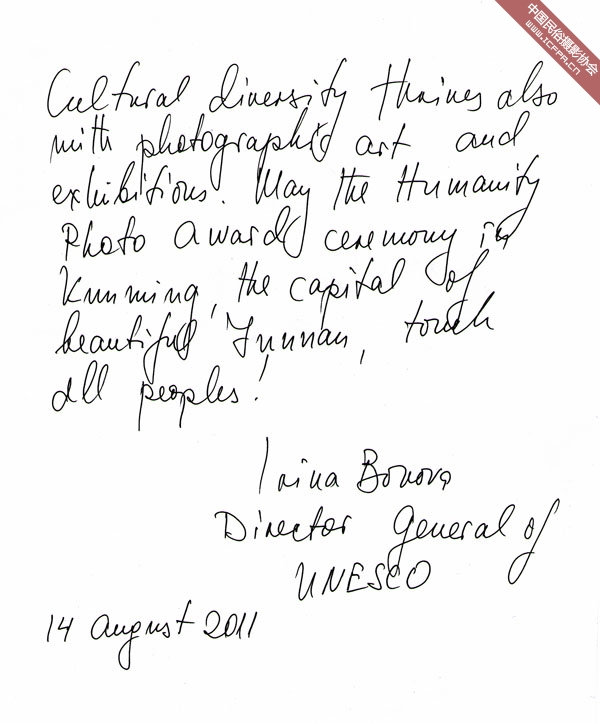 中国民俗摄影协会
www.icfpa.cn
Cultural diversity thrives also
with photographic art and
exhibitions. May the Humanity
Photo Award ceremony in
Kunming, the capital of
beautiful Yunnan, touch
all peoples!
Irina Bokova
Director General of
UNESCO
14 August 2011